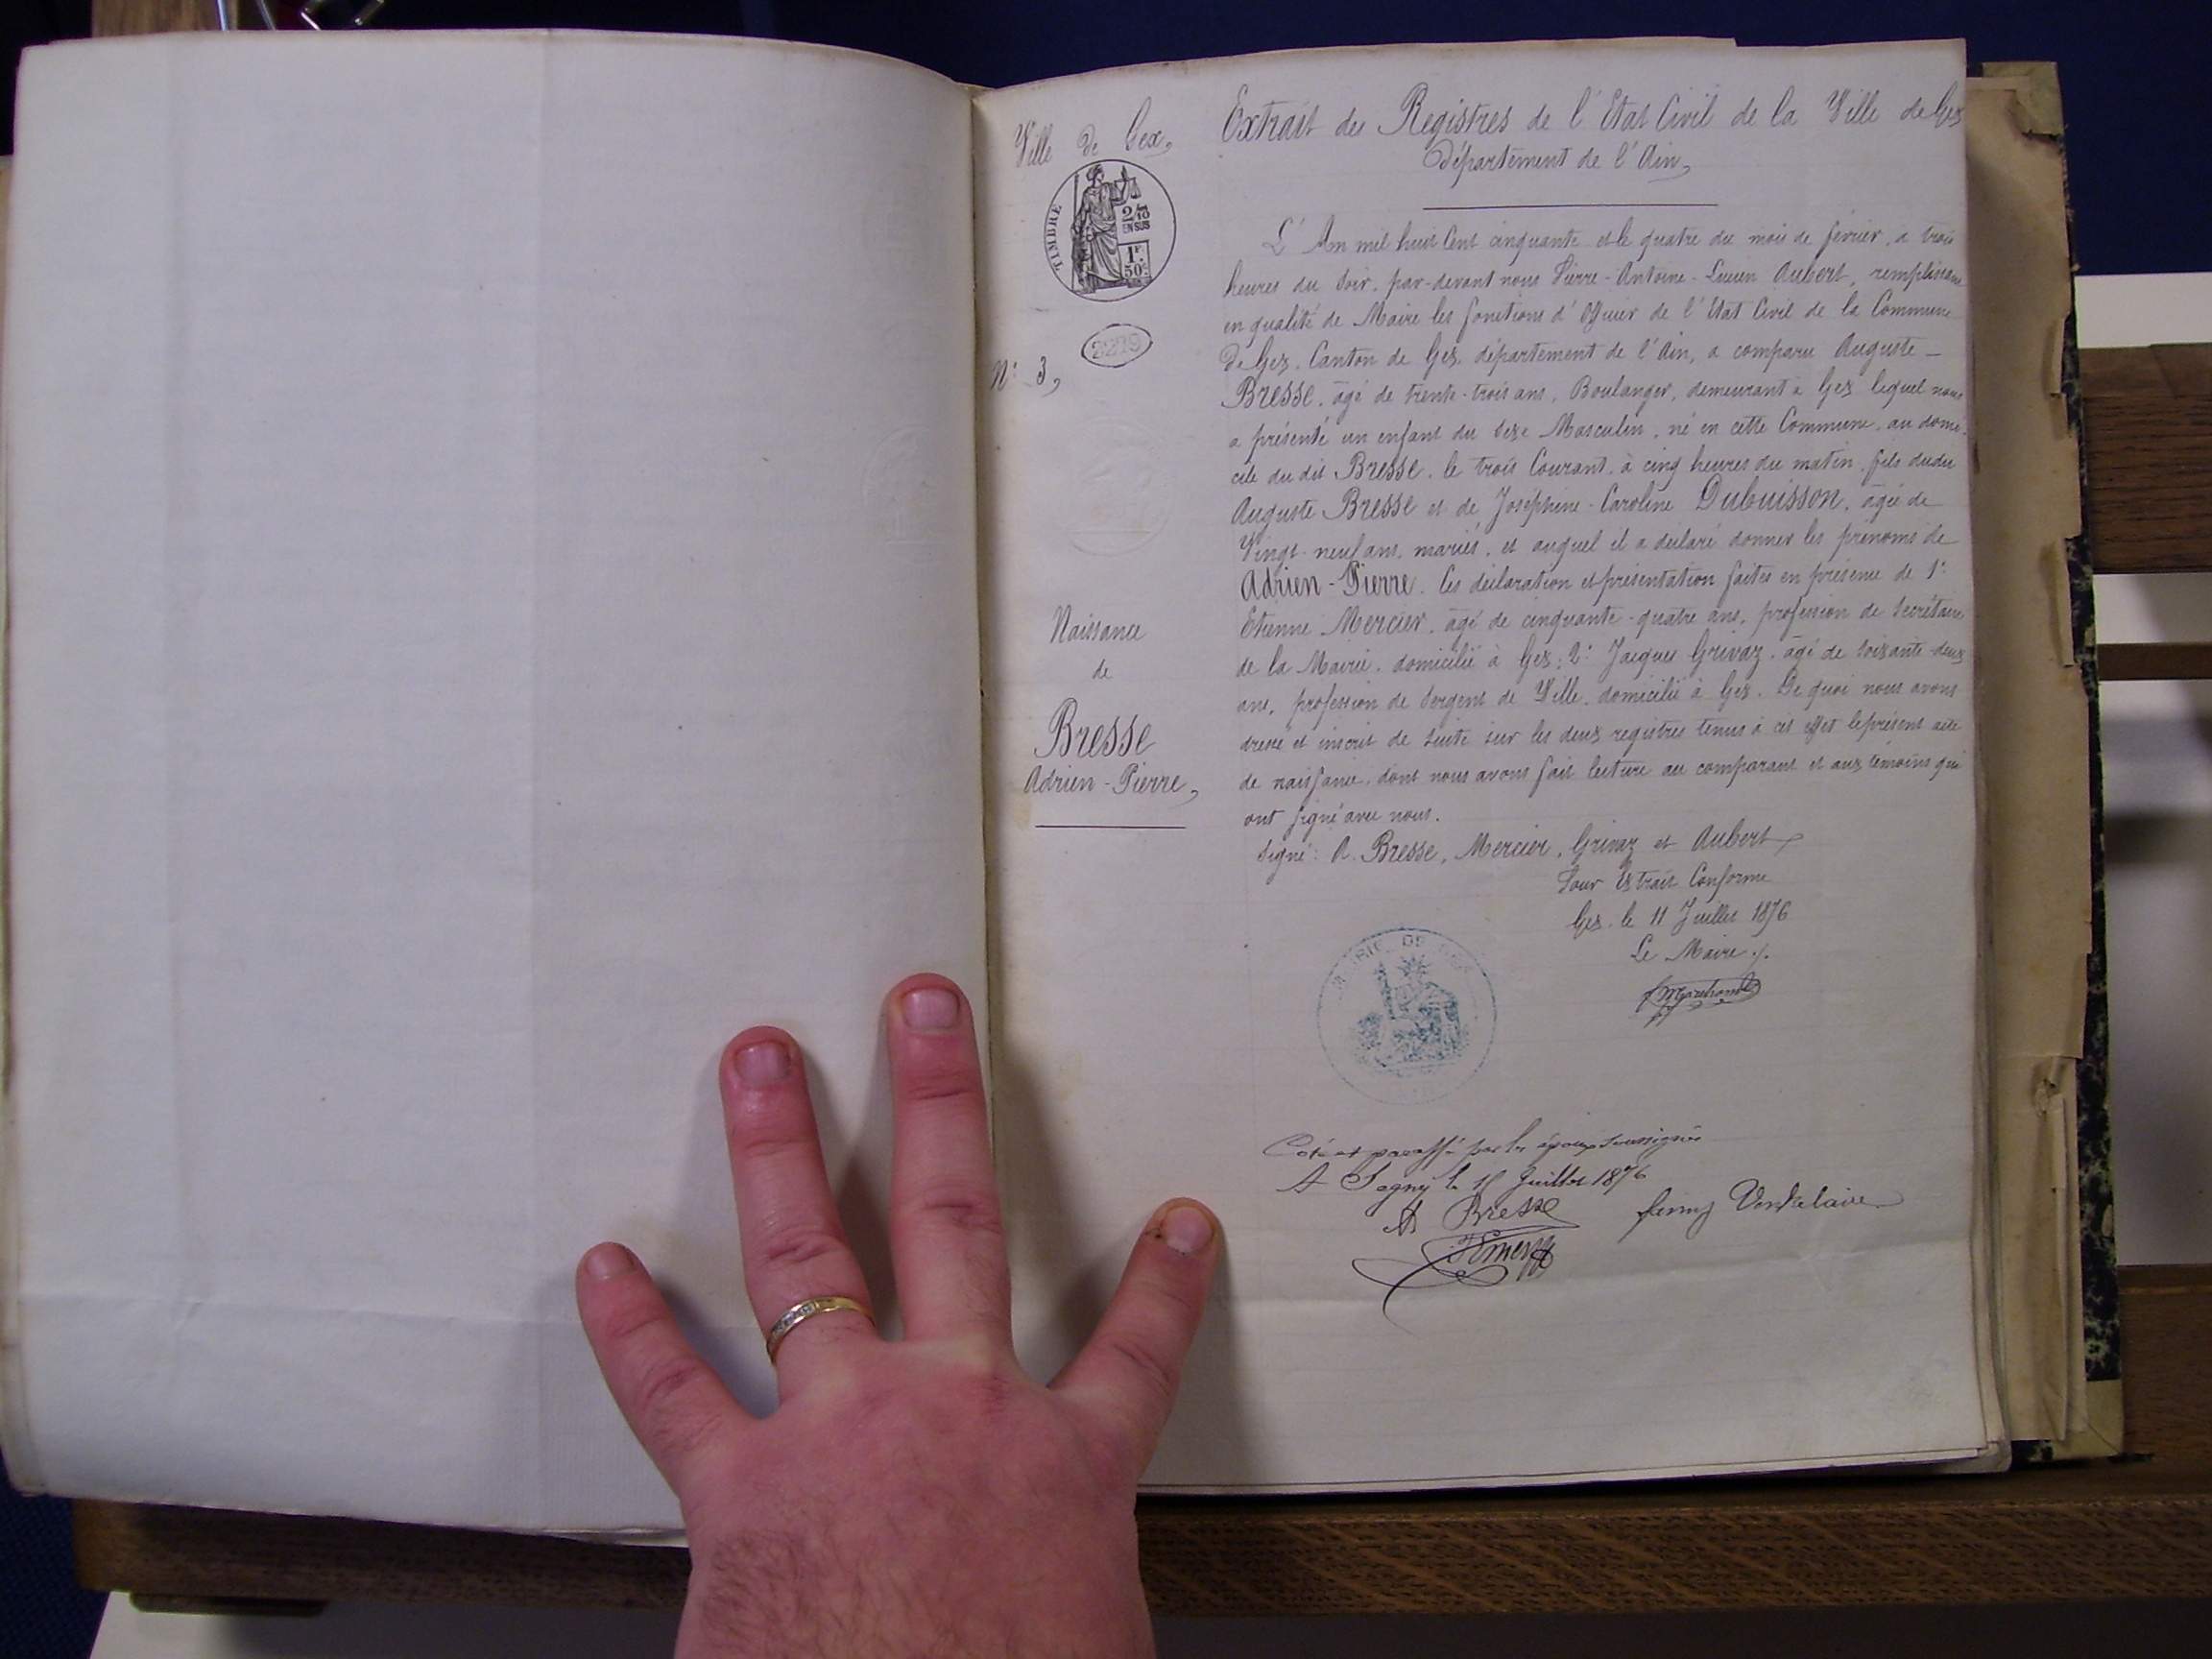 Ville de Gex,
TIMBRE
2/10
EN SUS
1F.
50c.
2219
N° 3,
Naissance
de
Bresse
Adrien-Pierre,
Extrait des Registres de l'Etat Civil de la Ville de Gex
Département de l'Ain,
L'An mil huit Cent cinquante et le quatre du mois de février, a trois
heures du Soir, par-devant nous Pierre-Antoine-Lucien Aubert, remplissant
en qualité de Maire les fonctions d'Officier de l'Etat Civil de la Commune
de Gex, Canton de Gex, département de l'Ain, a comparu Auguste-
Bresse, âgé de trente-trois ans, Boulanger, demeurant à Gex lequel nous
a présenté un enfant du Sexe Masculin, né en cette Commune, au domi-
cile du dit Bresse, le trois Courant, à cinq heures du matin, fils dudit
Auguste Bresse et de Josephine-Caroline Dubuisson, âgée de
Vingt-neuf ans, mariés, et auquel il a déclaré donner les prénoms de
Adrien-Pierre. Ces déclaration et présentation faites en présence de 1°
Etienne Mercier, âgé de cinquante-quatre ans, profession de Secrétaire
de la Mairie, domicilié à Gex; 2° Jacques Grivaz, âgé de soixante-deux
ans, profession de Sergent de Ville, domicilié à Gex. De quoi nous avons
dressé et inscrit de suite sur les deux registres tenus à cet effet le présent acte
de naissance, dont nous avons fait lecture au comparant et aux témoins qui
ont signé avec nous.
Signé: A. Bresse, Mercier, Grivaz et Aubert
Pour Extrait Conforme
Gex, le 11 Juillet 1876
Le Maire
MAIRIE DE GEX
Coté et paraffé par les époux soussignés
A Segny le 15 Juillet 1876
A Bresse